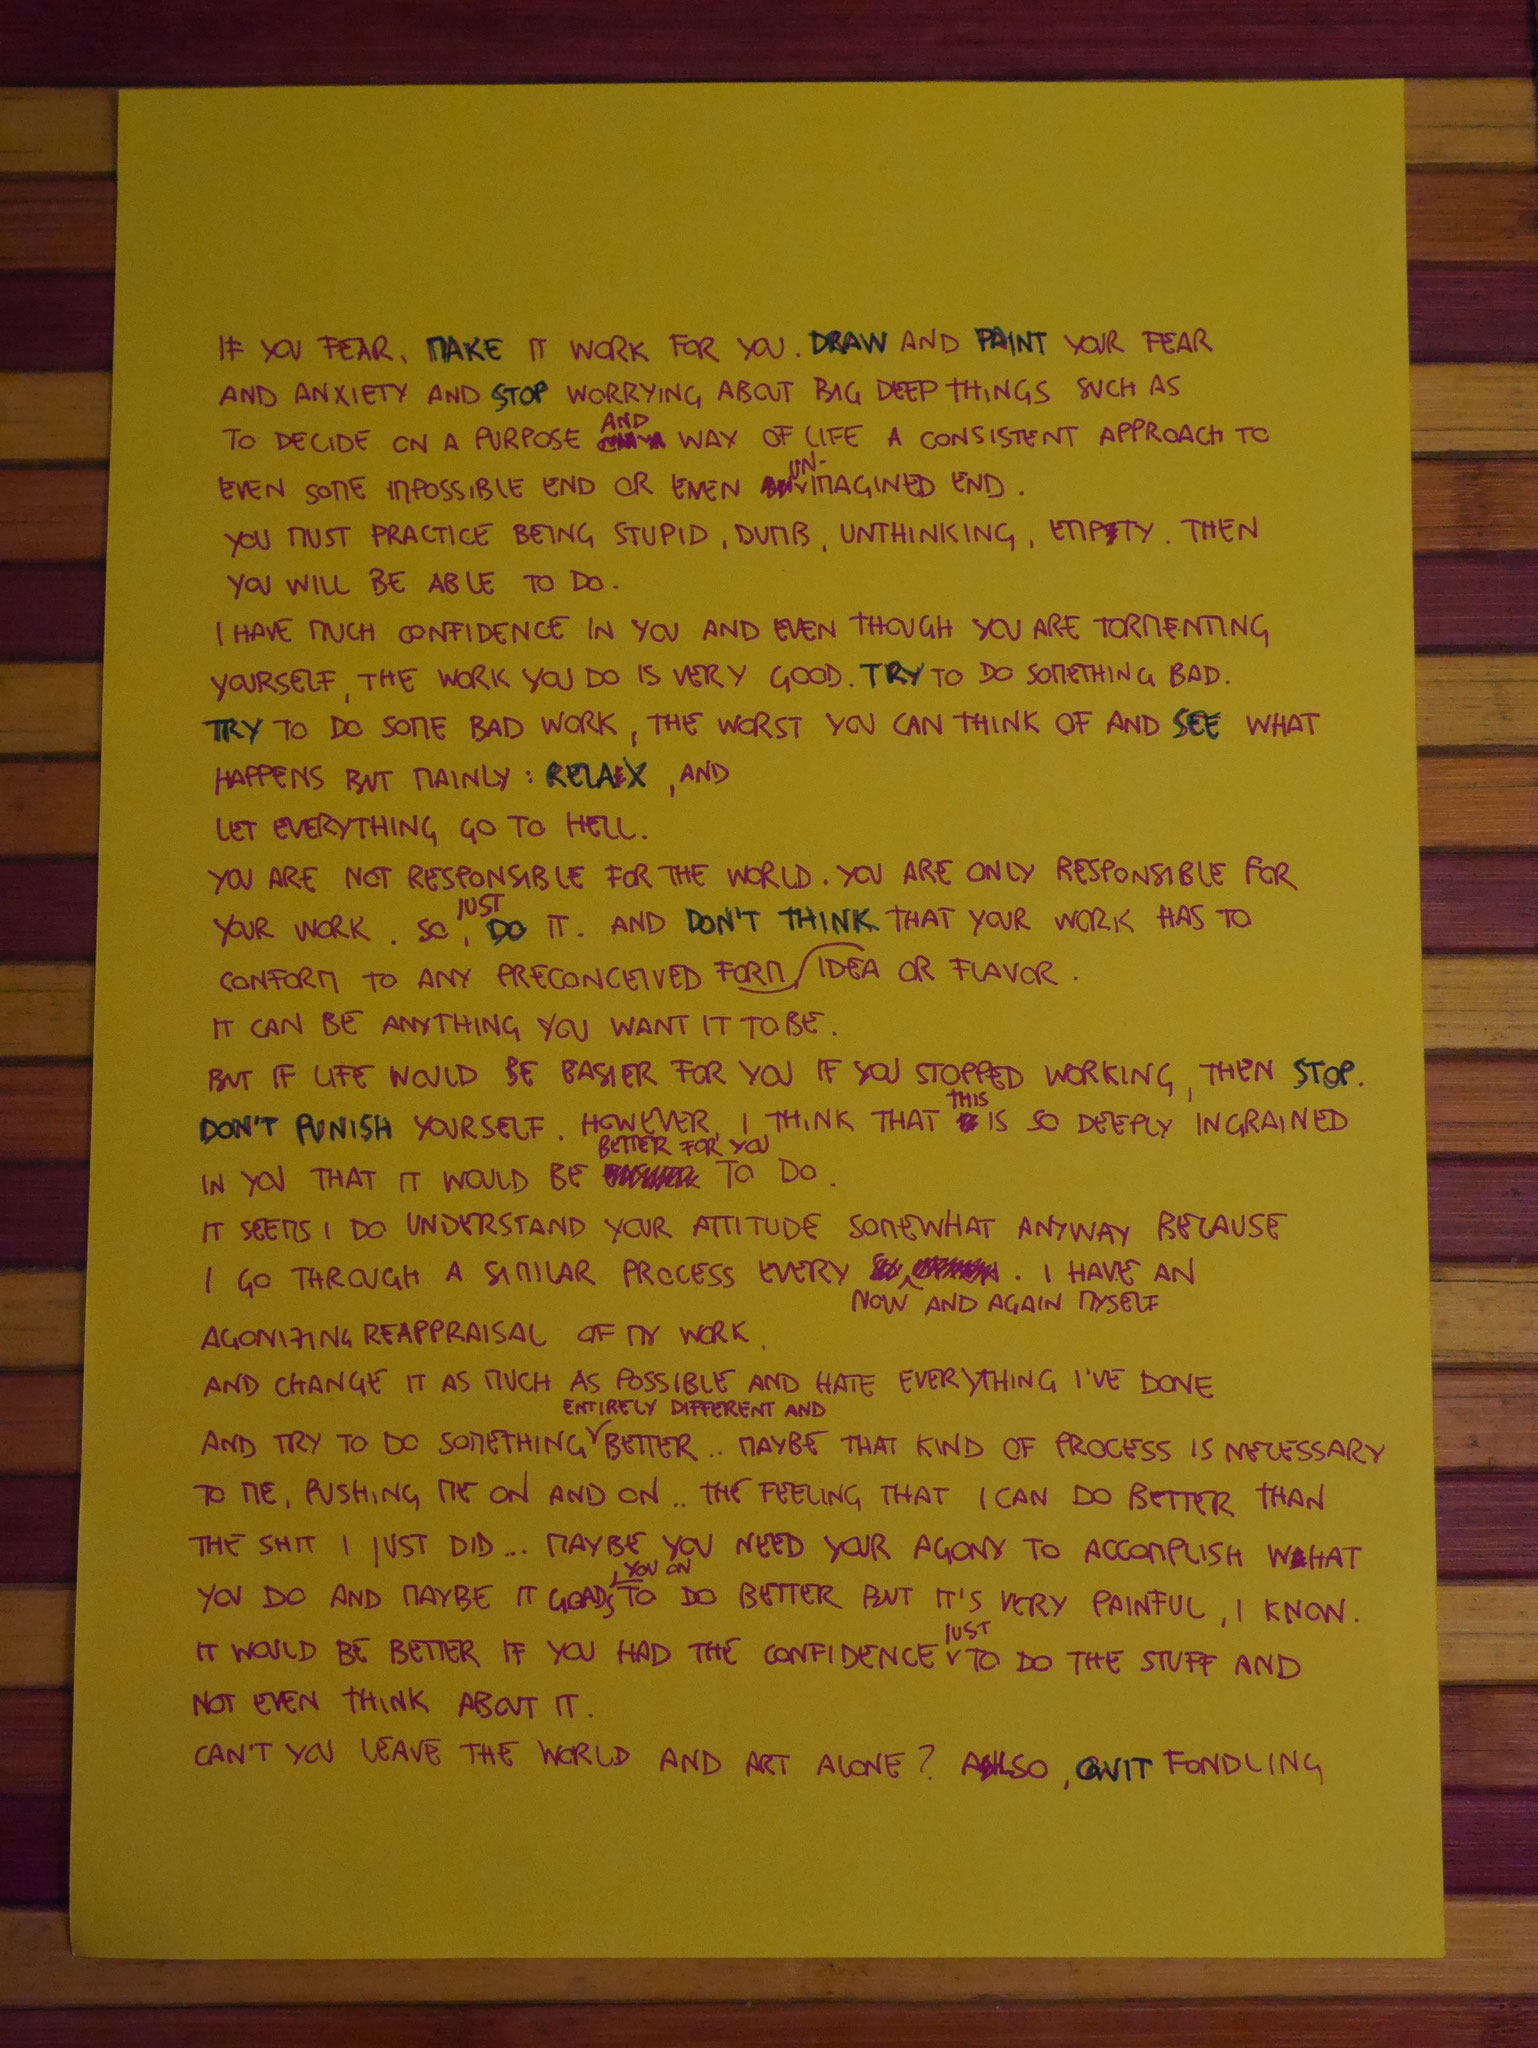 IF YOU FEAR, MAKE IT WORK FOR YOU. DRAW AND PAINT YOUR FEAR
AND ANXIETY AND STOP WORRYING ABOUT BIG DEEP THINGS SUCH AS
TO DECIDE ON A PURPOSE AND WAY OF LIFE A CONSISTENT APPROACH TO
EVEN SOME IMPOSSIBLE END OR EVEN UN-IMAGINED END.
YOU MUST PRACTICE BEING STUPID, DUMB, UNTHINKING, EMPTY. THEN
YOU WILL BE ABLE TO DO.
I HAVE MUCH CONFIDENCE IN YOU AND EVEN THOUGH YOU ARE TORMENTING
YOURSELF, THE WORK YOU DO IS VERY GOOD. TRY TO DO SOMETHING BAD.
TRY TO DO SOME BAD WORK, THE WORST YOU CAN THINK OF AND SEE WHAT
HAPPENS BUT MAINLY: RELAX, AND
LET EVERYTHING GO TO HELL.
YOU ARE NOT RESPONSIBLE FOR THE WORLD. YOU ARE ONLY RESPONSIBLE FOR
YOUR WORK. SO, JUST DO IT. AND DON'T THINK THAT YOUR WORK HAS TO
CONFORM TO ANY PRECONCEIVED FORM IDEA OR FLAVOR.
IT CAN BE ANYTHING YOU WANT IT TO BE.
BUT IF LIFE WOULD BE EASIER FOR YOU IF YOU STOPPED WORKING, THEN STOP.
DON'T PUNISH YOURSELF. HOWEVER, I THINK THAT THIS IS SO DEEPLY INGRAINED
IN YOU THAT IT WOULD BE BETTER FOR YOU TO DO.
IT SEEMS I DO UNDERSTAND YOUR ATTITUDE SOMEWHAT ANYWAY BECAUSE
I GO THROUGH A SIMILAR PROCESS EVERY NOW AND AGAIN MYSELF. I HAVE AN
AGONIZING REAPPRAISAL OF MY WORK.
AND CHANGE IT AS MUCH AS POSSIBLE AND HATE EVERYTHING I'VE DONE
AND TRY TO DO SOMETHING ENTIRELY DIFFERENT AND BETTER.. MAYBE THAT KIND OF PROCESS IS NECESSARY
TO ME, PUSHING ME ON AND ON.. THE FEELING THAT I CAN DO BETTER THAN
THE SHIT I JUST DID... MAYBE YOU NEED YOUR AGONY TO ACCOMPLISH WHAT
YOU DO AND MAYBE IT GOADS YOU ON TO DO BETTER BUT IT'S VERY PAINFUL, I KNOW.
IT WOULD BE BETTER IF YOU HAD THE CONFIDENCE JUST TO DO THE STUFF AND
NOT EVEN THINK ABOUT IT.
CAN'T YOU LEAVE THE WORLD AND ART ALONE? ALSO, QUIT FONDLING